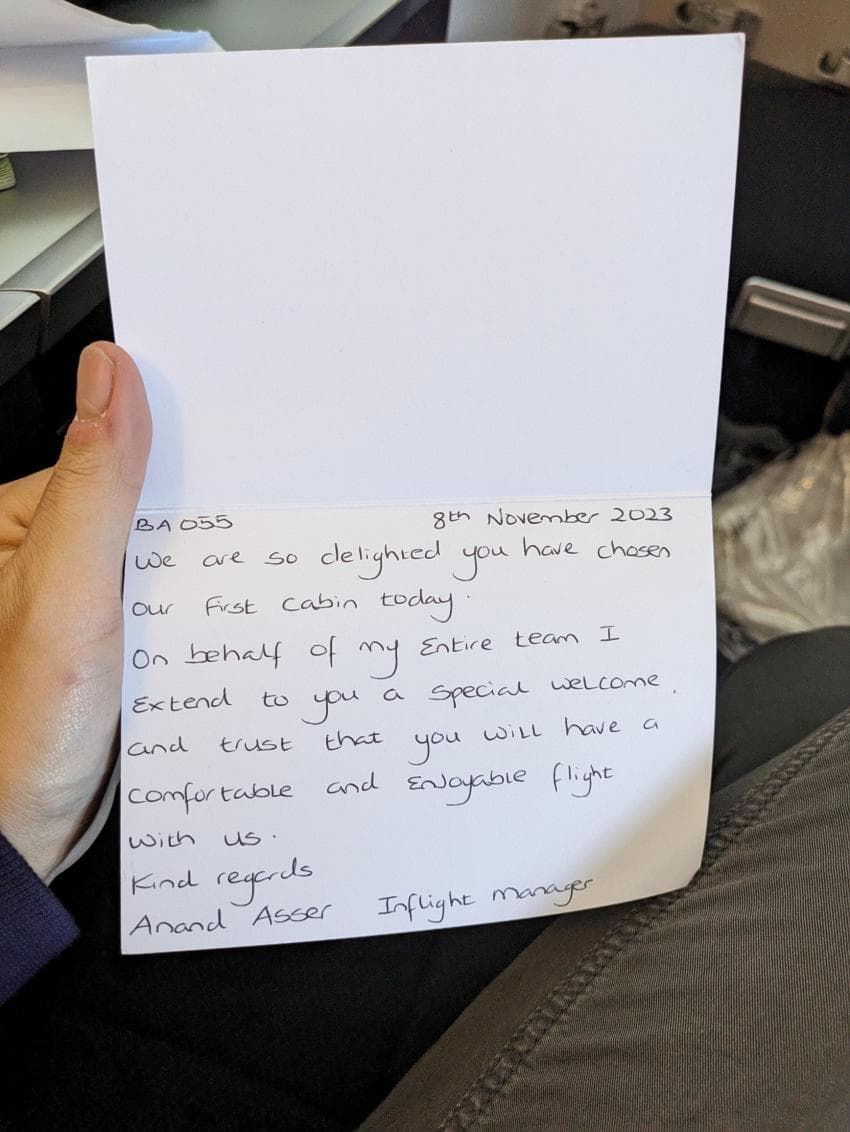 BA 055 8th November 2023
We are so delighted you have chosen
our First cabin today.
On behalf of my Entire team I
Extend to you a special welcome.
and trust that you will have a
comfortable and Enjoyable flight
with us.
Kind regards
Anand Asser Inflight manager